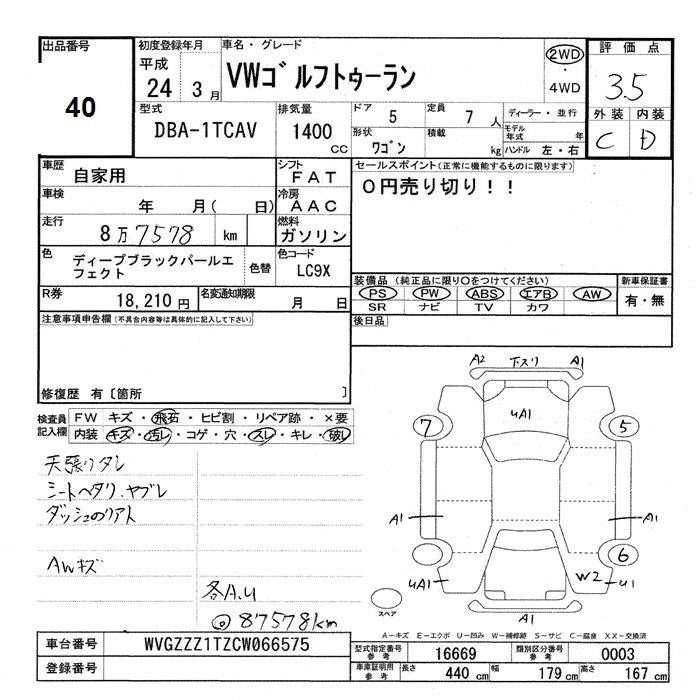 出品番号
40
初度登録年月
平成
24 3 月
車名・グレード
VWゴルフトゥーラン
2WD
・
4WD
評価点
3.5
外装 内装
C D
型式
DBA-1TCAV
排気量
1400
cc
ドア 5
定員 7 人
形状
ワゴン
積載
kg
ディーラー・並行
モデル年式 年
ハンドル 左・右
車歴
自家用
シフト
FAT
車検
年 月( 日)
冷房
AAC
走行
8万7578 km
燃料
ガソリン
色
ディープブラックパールエフェクト
色替
色コード
LC9X
R券
18,210 円
名変通知期限
月 日
セールスポイント(正常に機能するものに限ります)
0円売り切り!!
装備品 (純正品に限り○をつけてください)
PS PW ABS エアB AW
SR ナビ TV カワ
新車保証書
有・無
後日品
注意事項申告欄(不具合内容等は具体的に記入して下さい)
修復歴 有〔箇所 〕
検査員
記入欄
FW キズ・飛石・ヒビ割・リペア跡・×要
内装 キズ・汚レ・コゲ・穴・スレ・キレ・破レ
天張りタレ
シートヘタリ.ヤブレ
ダッシュのリアト
AWキズ
各A.U
@87578km
A2 下スリ A1
uA1
7
5
A1
A1
6
uA1
W2
u1
A1
スペア
A-キズ E-エクボ U-凹み W-補修跡 S-サビ C-腐食 XX-交換済
車台番号
WVGZZZ1TZCW066575
登録番号
型式指定番号
参考
16669
類別区分番号
参考
0003
車庫証明用
参考
長さ 440 cm
幅 179 cm
高さ 167 cm